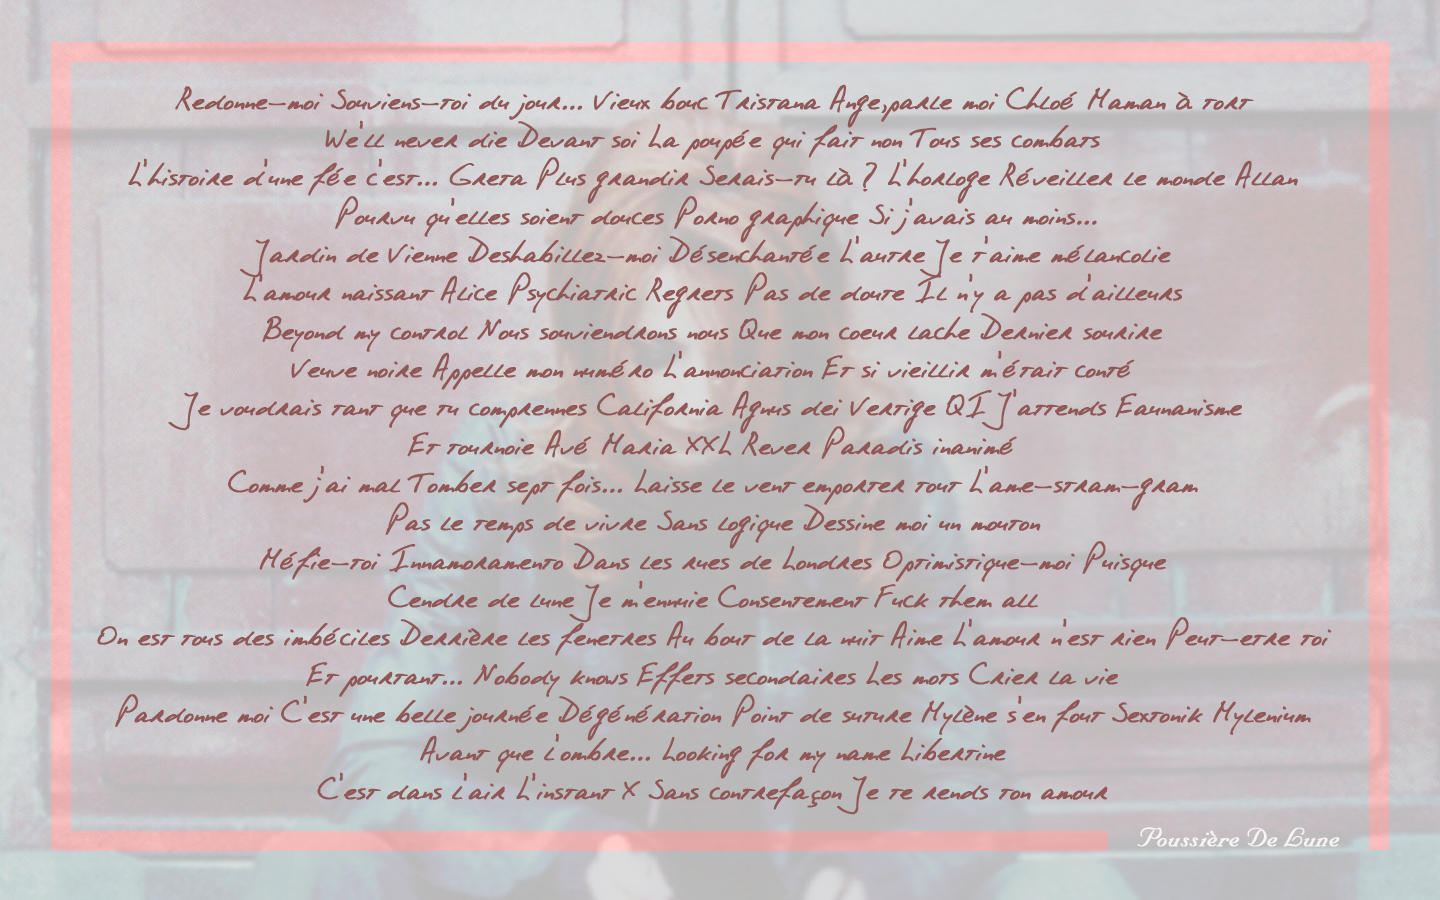 Redonne-moi Souviens-toi du jour... Vieux bouc Tristana Ange,parle moi Chloé Maman à tort
We'll never die Devant soi La poupée qui fait non Tous ses combats
L'histoire d'une fée c'est... Greta Plus grandir Serais-tu là ? L'horloge Réveiller le monde Allan
Pourvu qu'elles soient douces Porno graphique Si j'avais au moins...
Jardin de Vienne Deshabillez-moi Désenchantée L'autre Je t'aime mélancolie
L'amour naissant Alice Psychiatric Regrets Pas de doute Il n'y a pas d'ailleurs
Beyond my control Nous souviendrons nous Que mon coeur lache Dernier sourire
Veuve noire Appelle mon numéro L'annonciation Et si vieillir m'était conté
Je voudrais tant que tu comprennes California Agnus dei Vertige QI J'attends Eaunanisme
Et tournoie Avé Maria XXL Rever Paradis inanimé
Comme j'ai mal Tomber sept fois... Laisse le vent emporter tout L'ame-stram-gram
Pas le temps de vivre Sans logique Dessine moi un mouton
Méfie-toi Innamoramento Dans les rues de Londres Optimistique-moi Puisque
Cendre de lune Je m'ennuie Consentement Fuck them all
On est tous des imbéciles Derrière les fenetres Au bout de la nuit Aime L'amour n'est rien Peut-etre toi
Et pourtant... Nobody knows Effets secondaires Les mots Crier la vie
Pardonne moi C'est une belle journée Dégénération Point de suture Mylène s'en fout Sextonik Mylenium
Avant que l'ombre... Looking for my name Libertine
C'est dans l'air L'instant X Sans contrefaçon Je te rends ton amour
Poussière De Lune